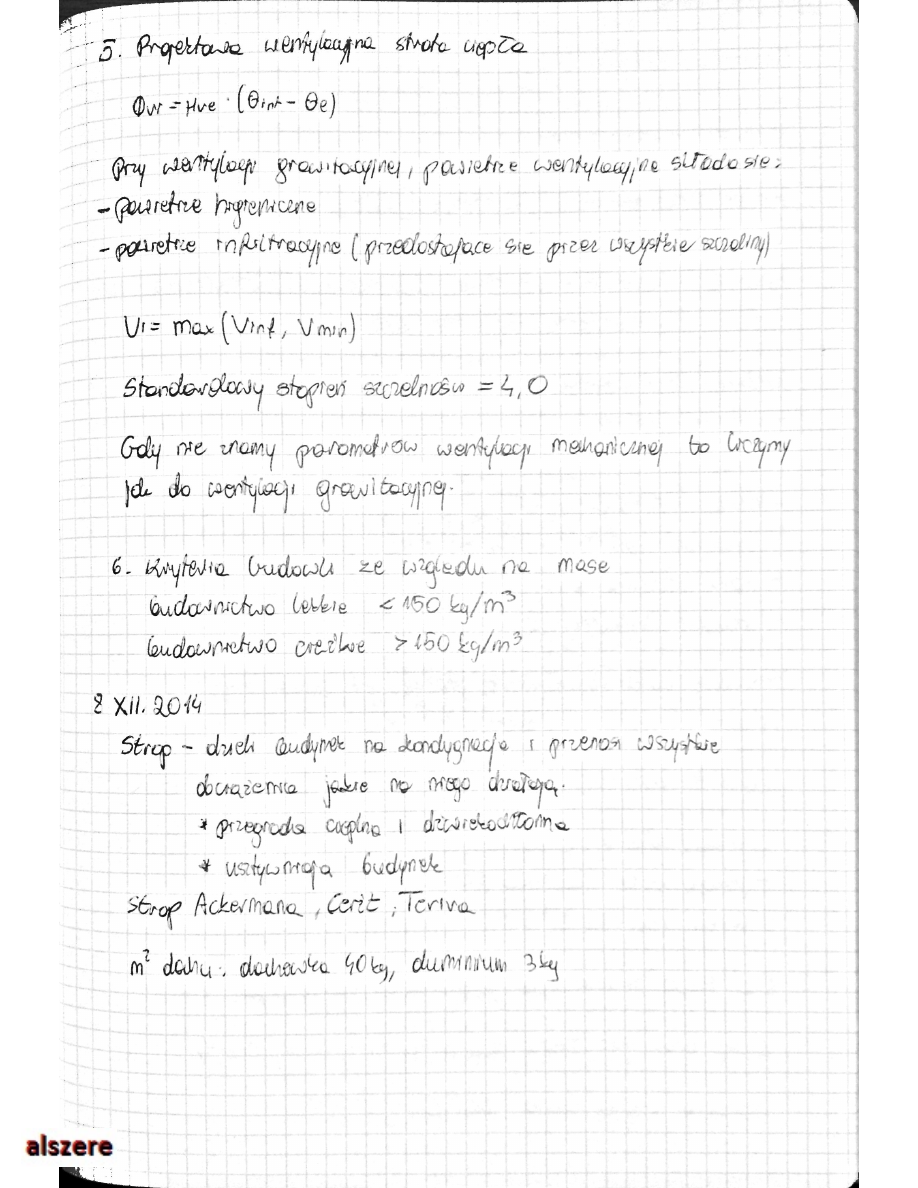 5. Projektowa wentylacyjna strata ciepła
Φvi = Hve · (Θint - Θe)
Przy wentylacji grawitacyjnej, powietrze wentylacyjne składa sie:
- powietrze higieniczne
- powietrze infiltracyjne (przedostające sie przez wszystkie szczeliny)
Vi = max (Vinf, Vmin)
Standardowy stopień szczelności = 4,0
Gdy nie znamy parametrów wentylacji mechanicznej to liczymy
jak do wentylacji grawitacyjnej.
6. Kryteria budowli ze względu na mase
budownictwo lekkie < 150 kg/m³
budownictwo ciężkie > 150 kg/m³
8 XII. 2014
Strop - dzieli budynek na kondygnacje i przenosi wszystkie
obciążenia jakie na niego działają.
* przegroda cieplna i dźwiękochłonna
* usztywniają budynek
Strop Ackermana, Cerit, Teriva
m² dachu: dachówka 40 kg, aluminium 3 kg
alszere